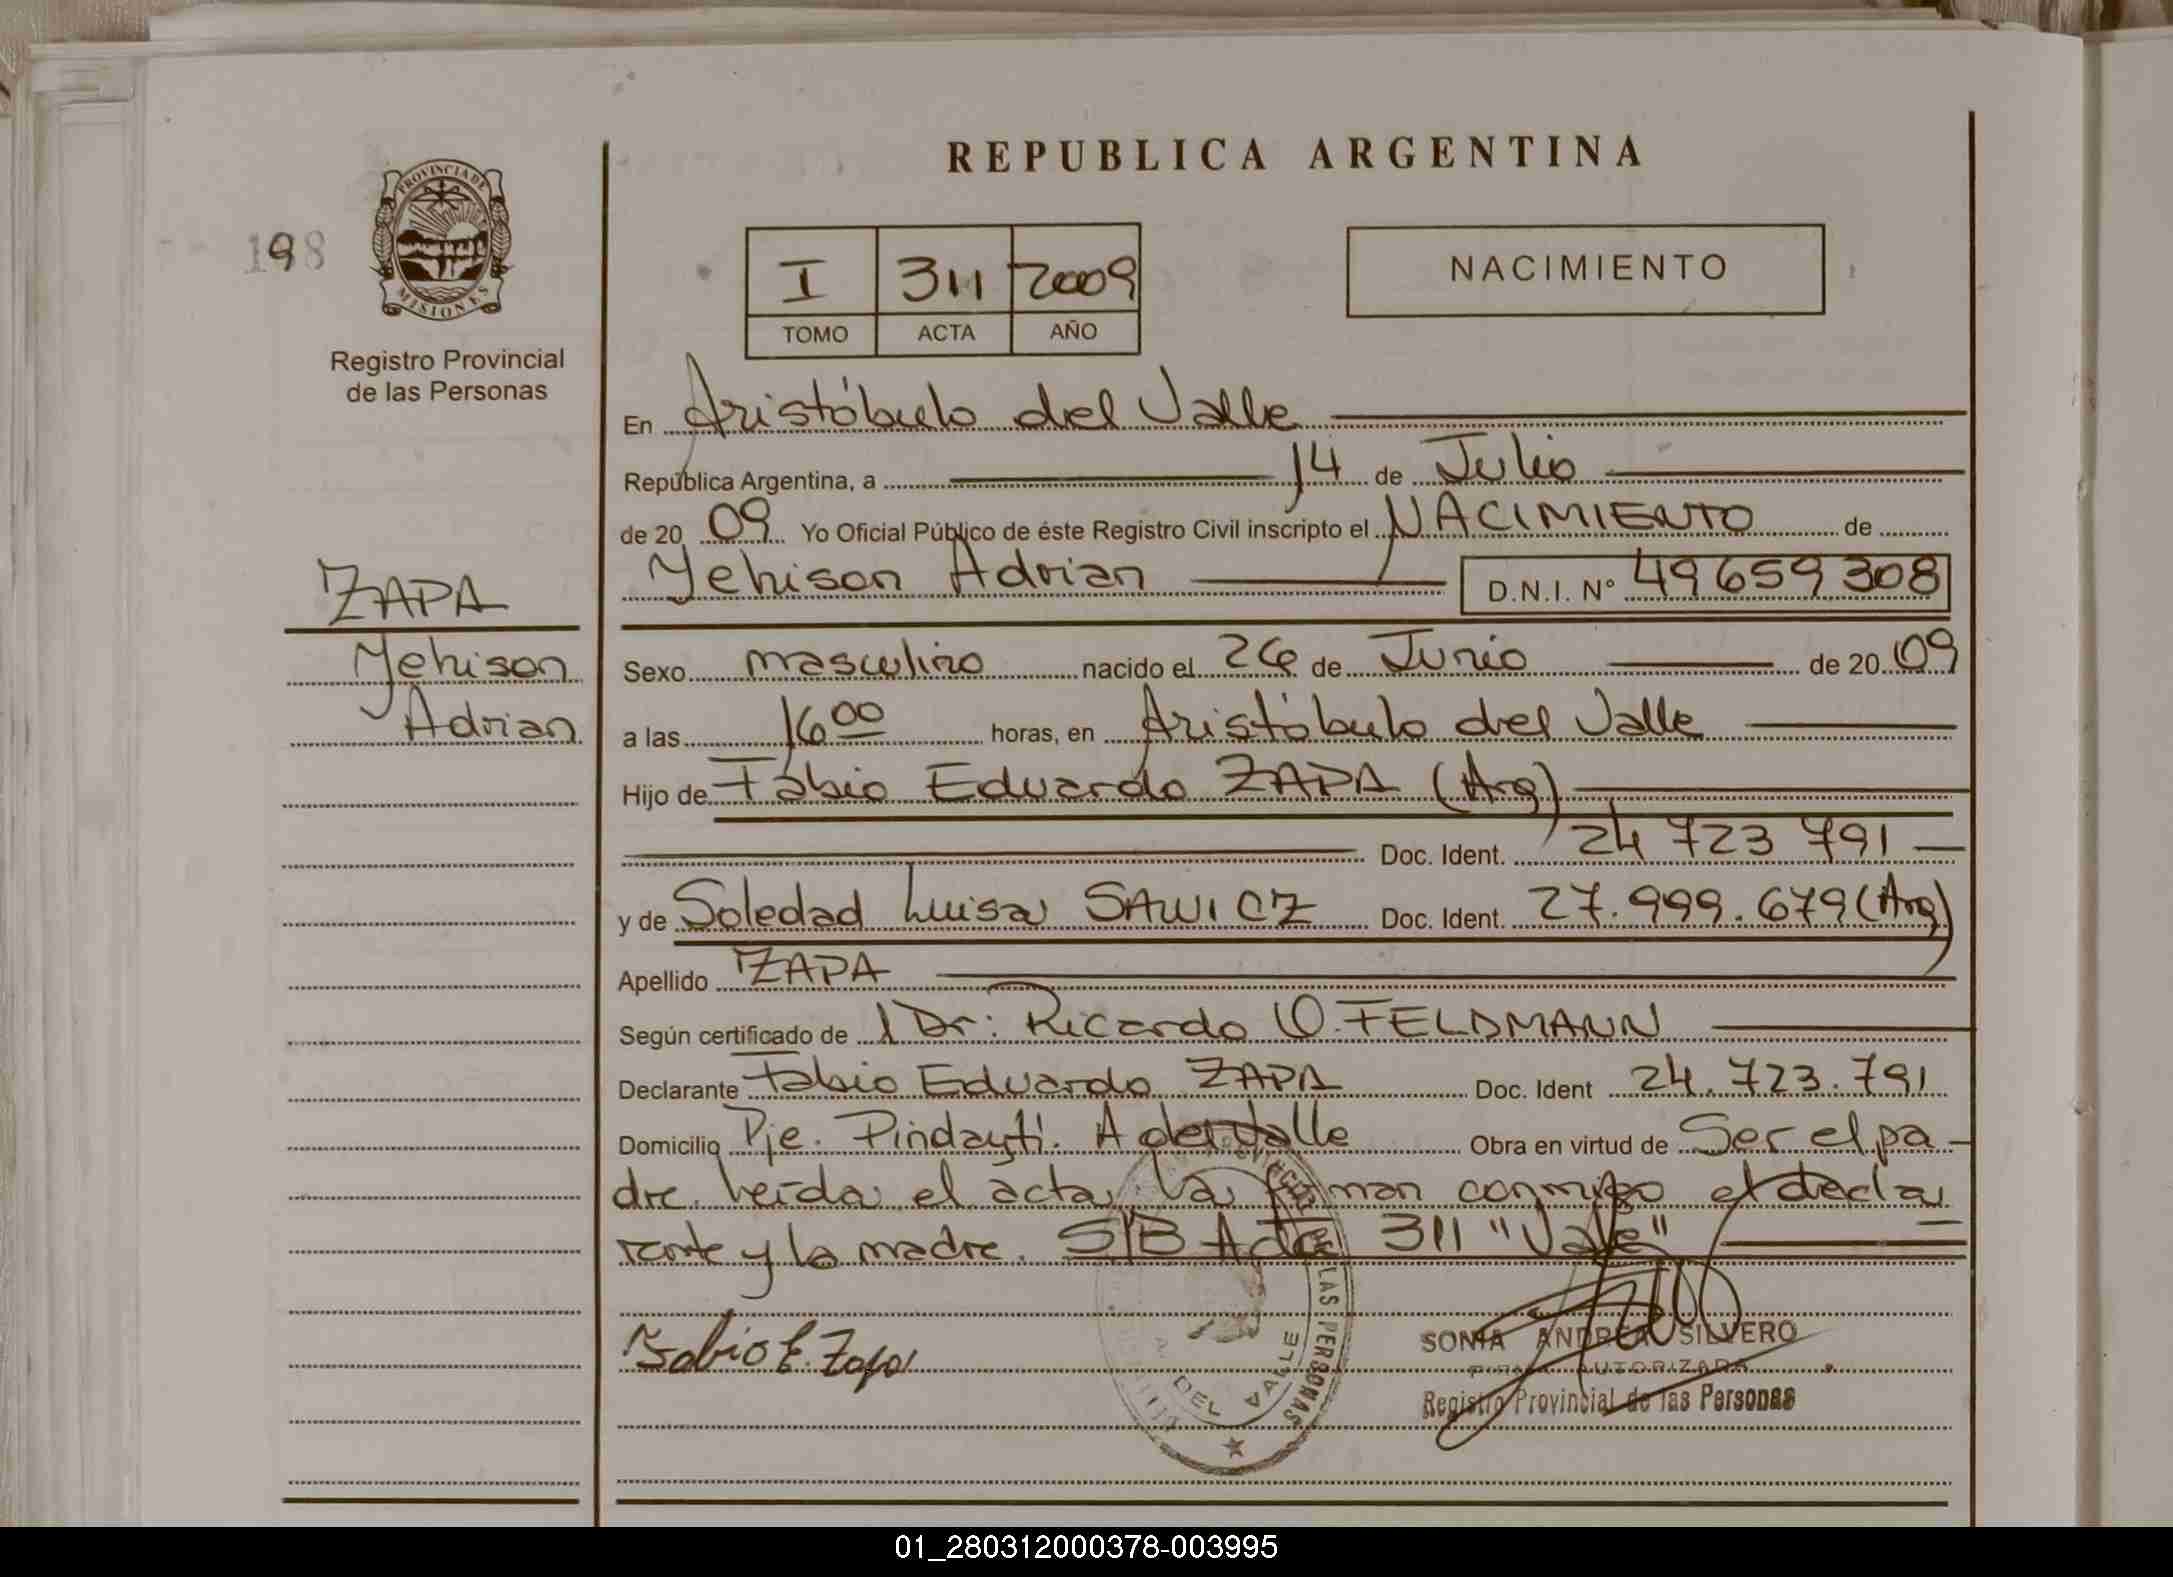 REPUBLICA ARGENTINA
PROVINCIA DE
MISIONES
198
Registro Provincial
de las Personas
I 311 2009
TOMO ACTA AÑO
NACIMIENTO
En Aristóbulo del Valle
República Argentina, a 14 de Julio
de 20 09 Yo Oficial Público de éste Registro Civil inscripto el NACIMIENTO de
Yehison Adrian D.N.I. Nº 49659308
ZAPA
Yehison
Adrian
Sexo masculino nacido el 26 de Junio de 20 09
a las 16 00 horas, en Aristóbulo del Valle
Hijo de Fabio Eduardo ZAPA (Arg)
Doc. Ident. 24 723 791
y de Soledad Luisa SAWICZ Doc. Ident. 27.999.679 (Arg)
Apellido ZAPA
Según certificado de Dr: Ricardo O. FELDMANN
Declarante Fabio Eduardo ZAPA Doc. Ident 24.723.791
Domicilio Pje. Pindaytí. A del Valle Obra en virtud de Ser el pa-
dre. Leída el acta la firman conmigo el decla
rante y la madre. S/B Acta 311 "Vale"
Fabio E. Zapa
DE LAS PERSONAS
DEL VALLE
SONIA ANDREA SILVERO
FIRMA AUTORIZADA
Registro Provincial de las Personas
01_280312000378-003995